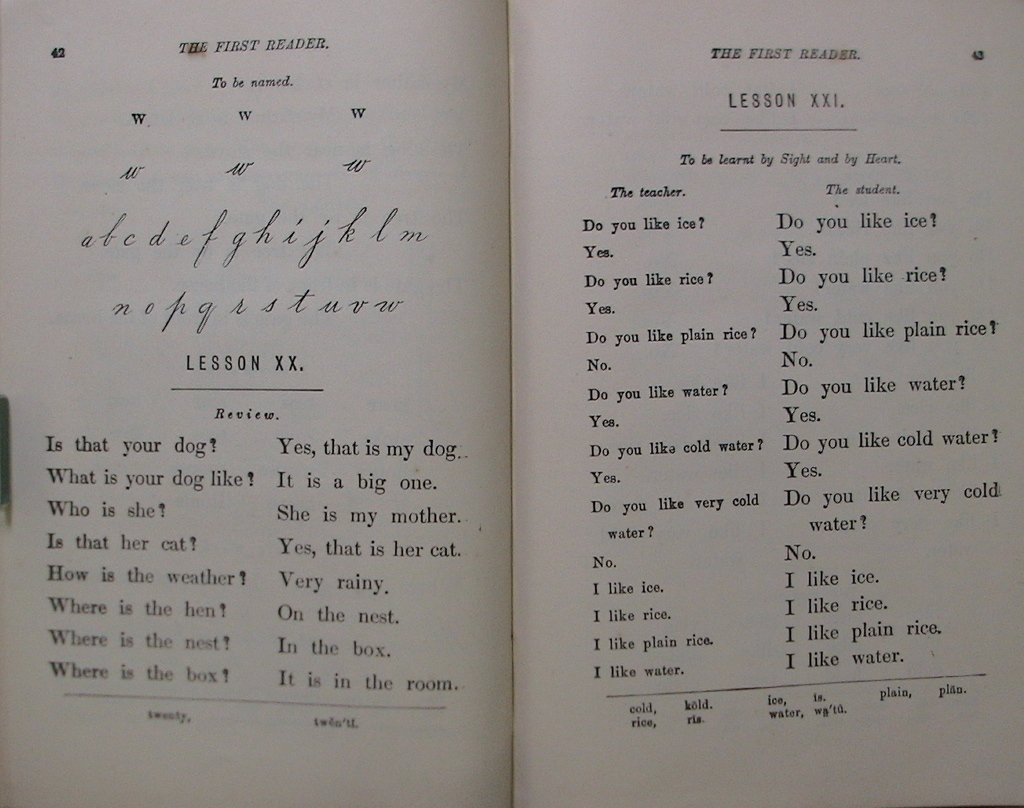 42
THE FIRST READER.
To be named.
w w w
w w w
a b c d e f g h i j k l m
n o p q r s t u v w
LESSON XX.
Review.
Is that your dog? Yes, that is my dog.
What is your dog like? It is a big one.
Who is she? She is my mother.
Is that her cat? Yes, that is her cat.
How is the weather? Very rainy.
Where is the hen? On the nest.
Where is the nest? In the box.
Where is the box? It is in the room.
twenty, twĕn'tĭ.
THE FIRST READER.
43
LESSON XXI.
To be learnt by Sight and by Heart.
The teacher. The student.
Do you like ice? Do you like ice?
Yes. Yes.
Do you like rice? Do you like rice?
Yes. Yes.
Do you like plain rice? Do you like plain rice?
No. No.
Do you like water? Do you like water?
Yes. Yes.
Do you like cold water? Do you like cold water?
Yes. Yes.
Do you like very cold Do you like very cold
water? water?
No. No.
I like ice. I like ice.
I like rice. I like rice.
I like plain rice. I like plain rice.
I like water. I like water.
cold, kōld. ice, īs. plain, plān.
rice, rīs. water, wa̤'tû.